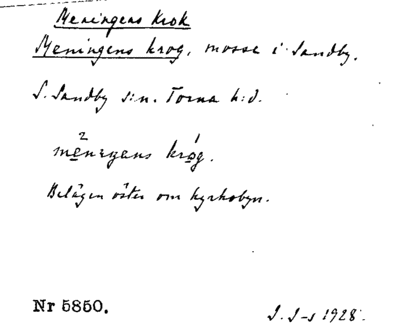 Meningens Krok
Meningens krog, mosse i Sandby.
S. Sandby s:n. Torna h:d.
2 1
meningans krog.
Belägen öster om kyrkobyn.
Nr 5850.
1928.